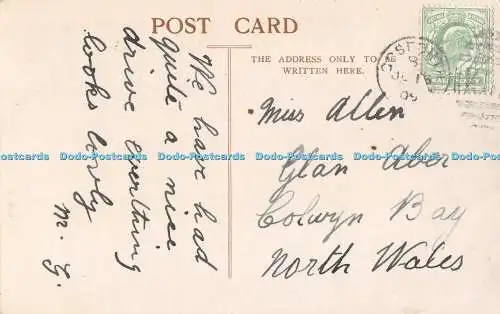 POST CARD
THE ADDRESS ONLY TO BE
WRITTEN HERE.
We have had
quite a nice
drive Everthing
looks lovly
M. G.
Miss Allen
Glan Aber
Colwyn Bay
North Wales
Dodo-Postcards Dodo-Postcards Dodo-Postcards Dodo-Postcards Dodo-Postcards